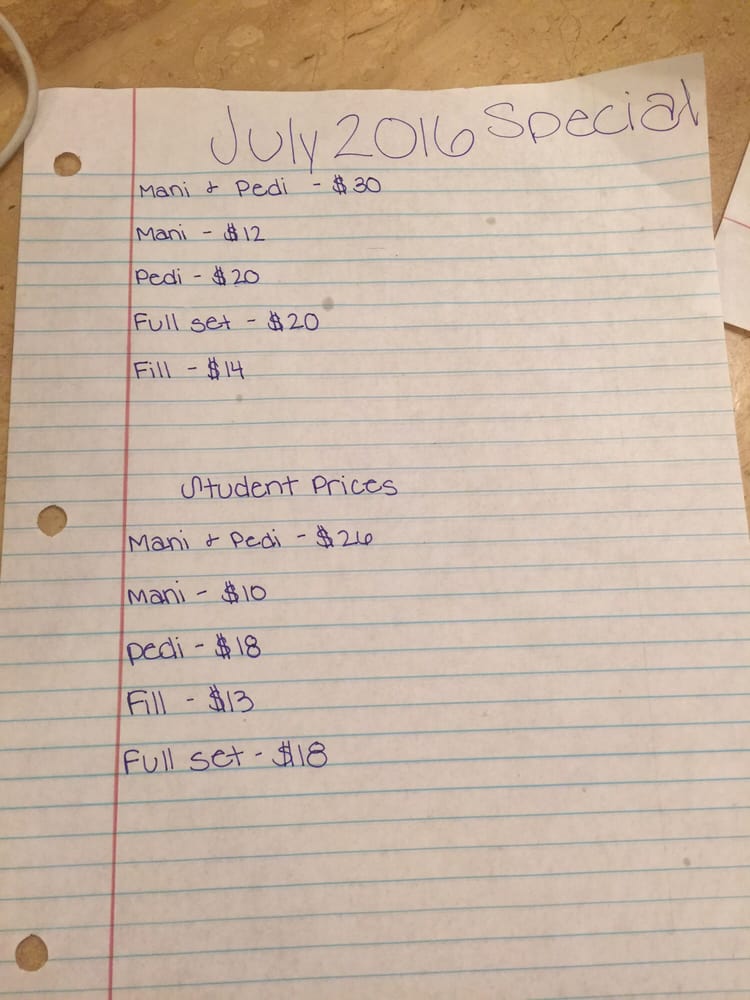 July 2016 Special
Mani & Pedi - $30
Mani - $12
Pedi - $20
Full set - $20
Fill - $14
Student Prices
Mani & Pedi - $26
Mani - $10
Pedi - $18
Fill - $13
Full set - $18